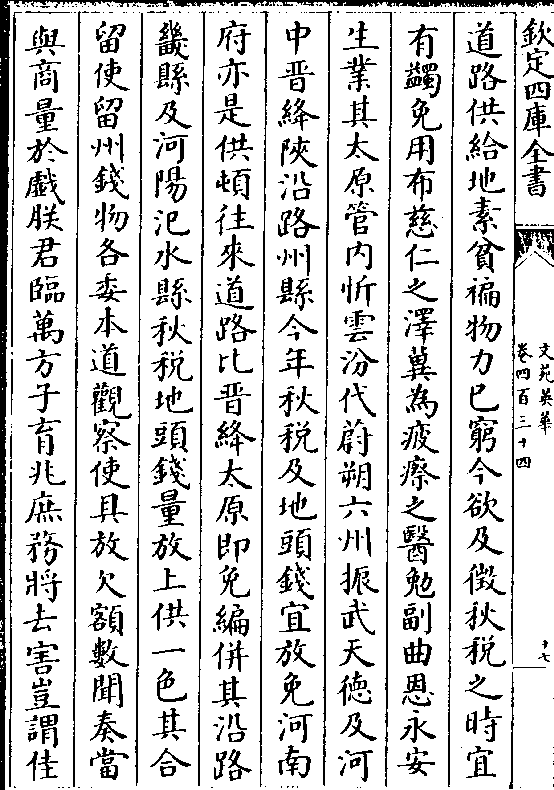 欽定四庫全書
文苑英華
卷四百三十四
十七
道路供給地素貧褊物力已窮今欲及徵秋税之時宜
有蠲免用布慈仁之澤冀為疲瘵之醫勉副曲恩永安
生業其太原管内忻雲汾代蔚朔六州振武天德及河
中晉絳陜沿路州縣今年秋税及地頭錢宜放免河南
府亦是供頓往來道路比晉絳太原即免編併其沿路
畿縣及河陽汜水縣秋税地頭錢量放上供一色其合
留使留州錢物各委本道觀察使具放欠額數聞奏當
與商量於戲朕君臨萬方子育兆庶務將去害豈謂佳